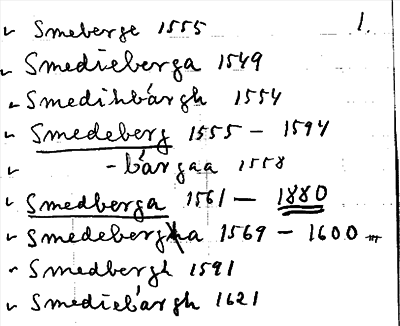 Smeberge 1555 1.
Smedieberga 1549
Smedihbárgh 1554
Smedeberg 1555 - 1594
-bárgaa 1558
Smedberga 1561 - 1880
Smedeberga 1569 - 1600
Smedbergh 1591
Smediebárgh 1621